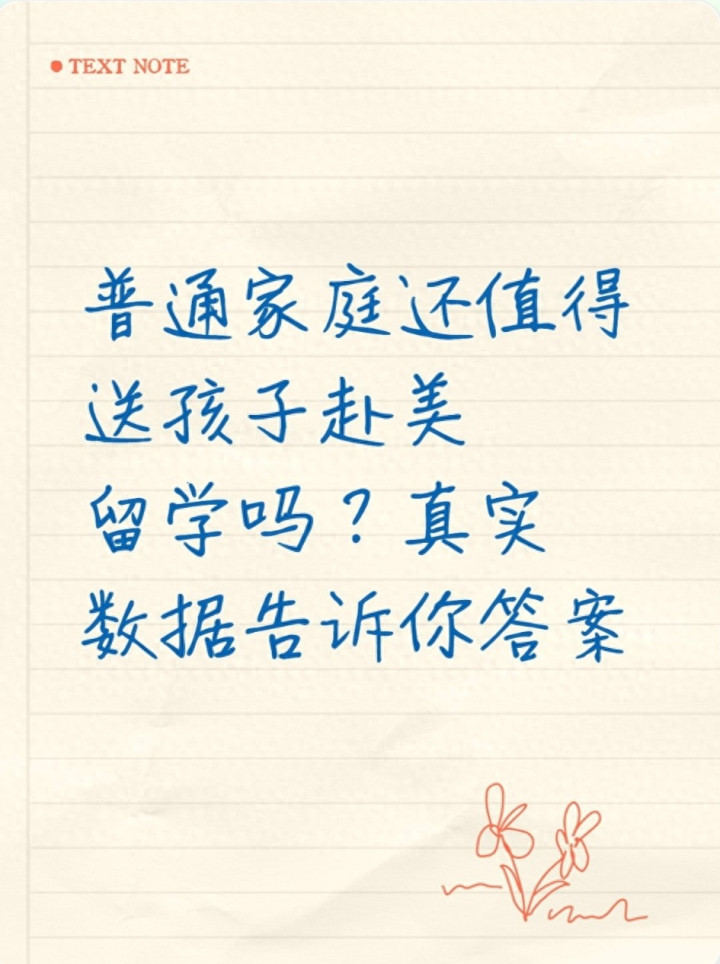 TEXT NOTE
普通家庭还值得
送孩子赴美
留学吗？真实
数据告诉你答案